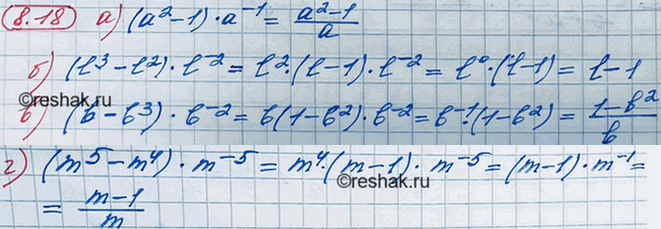 8.18 а) (a² - 1) · a⁻¹ = (a² - 1)/a
б) (l³ - l²) · l⁻² = l² · (l - 1) · l⁻² = l⁰ · (l - 1) = l - 1
©reshak.ru
в) (b - b³) · b⁻² = b(1 - b²) · b⁻² = b⁻¹ · (1 - b²) = (1 - b²)/b
г) (m⁵ - m⁴) · m⁻⁵ = m⁴ · (m - 1) · m⁻⁵ = (m - 1) · m⁻¹ =
©reshak.ru
= (m - 1)/m